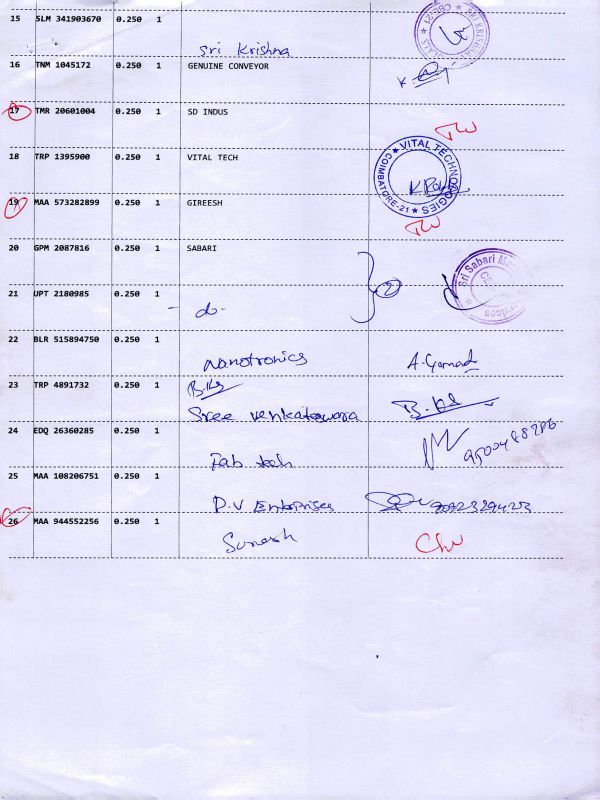 15 SLM 341903670 0.250 1
Sri Krishna
16 TNM 1045172 0.250 1 GENUINE CONVEYOR
17 TMR 20601004 0.250 1 SD INDUS
18 TRP 1395900 0.250 1 VITAL TECH
VITAL TECHNOLOGIES
COIMBATORE-21
19 MAA 573282899 0.250 1 GIREESH
20 GPM 2087816 0.250 1 SABARI
2
Sri Sabari
21 UPT 2180985 0.250 1
- do -
22 BLR 515894750 0.250 1
nanotronics
23 TRP 4891732 0.250 1
Sree venkateswara
24 EDQ 26360285 0.250 1
Fab tech
25 MAA 108206751 0.250 1
P.V Enterprises
26 MAA 944552256 0.250 1
Suresh